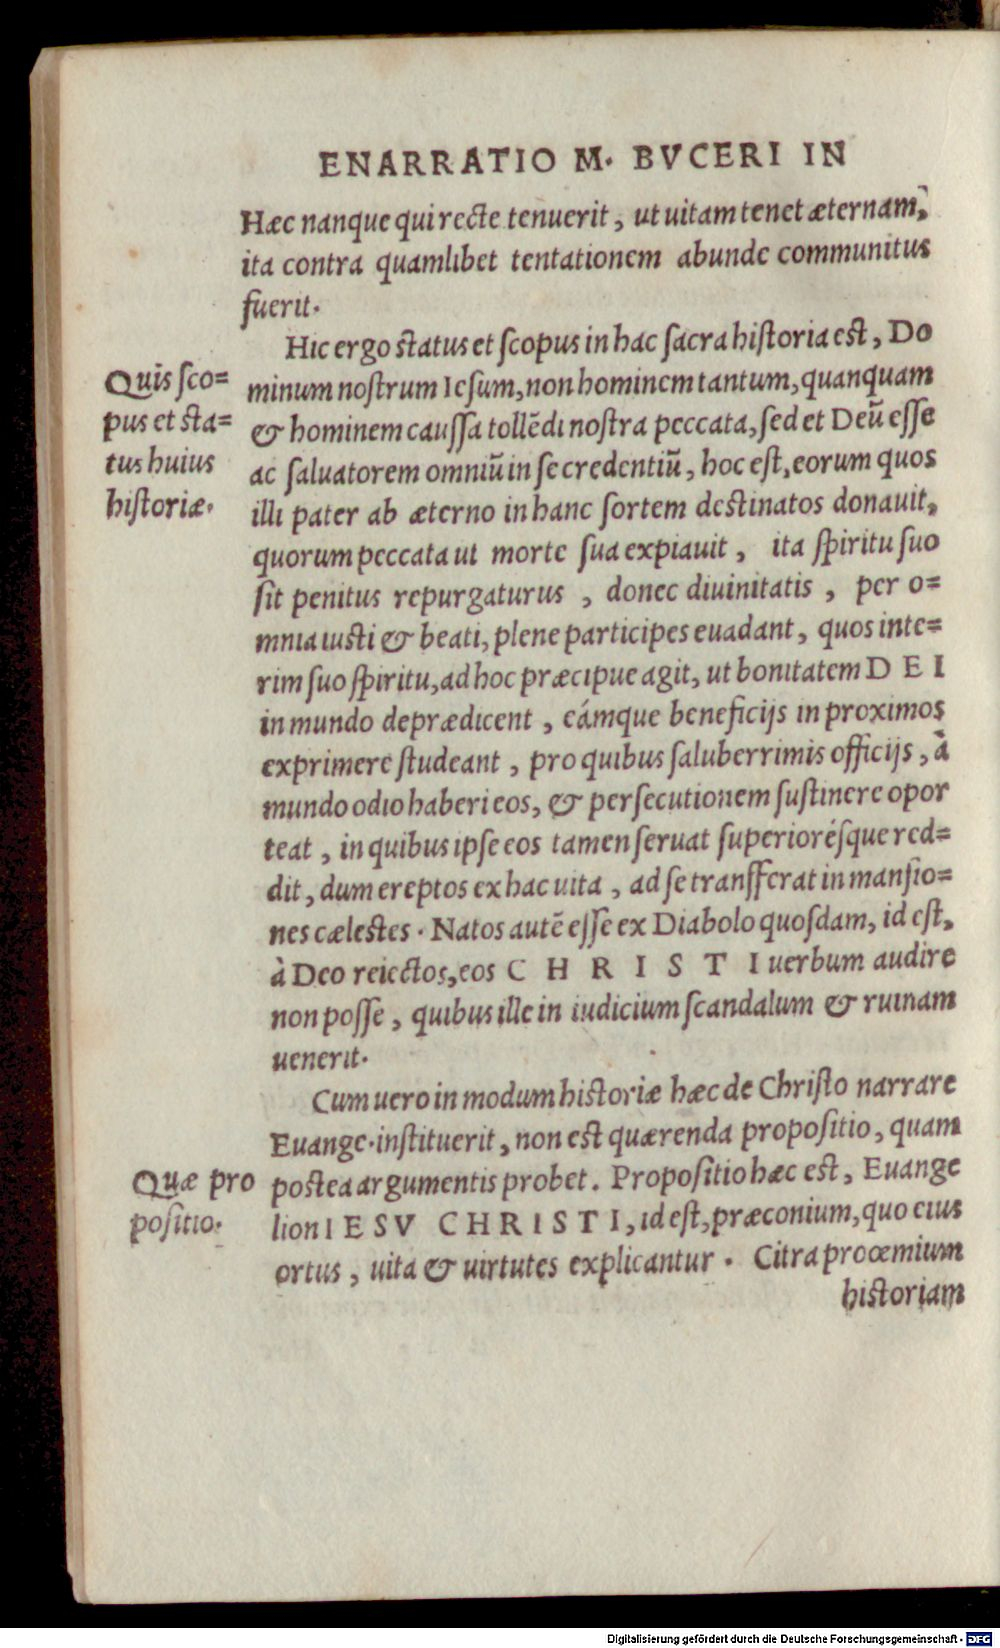 ENARRATIO M. BVCERI IN
Hæc nanque qui recte tenuerit, ut uitam tenet æternam,
ita contra quamlibet tentationem abunde communitus
fuerit.
Hic ergo status et ſcopus in hac ſacra hiſtoria eſt, Do
minum noſtrum Ieſum, non hominem tantum, quanquam
& hominem cauſſa tollēdi noſtra peccata, ſed et Deū eſſe
ac ſaluatorem omniū in ſe credentiū, hoc eſt, eorum quos
illi pater ab æterno in hanc ſortem deſtinatos donauit,
quorum peccata ut morte ſua expiauit, ita ſpiritu ſuo
ſit penitus repurgaturus, donec diuinitatis, per o=
mnia iuſti & beati, plene participes euadant, quos inte=
rim ſuo ſpiritu, ad hoc præcipue agit, ut bonitatem DEI
in mundo deprædicent, eámque beneficijs in proximos
exprimere ſtudeant, pro quibus ſaluberrimis officijs, à
mundo odio haberi eos, & perſecutionem ſuſtinere opor
teat, in quibus ipſe eos tamen ſeruat ſuperioréſque red=
dit, dum ereptos ex hac uita, ad ſe tranſferat in manſio=
nes cæleſtes. Natos autē eſſe ex Diabolo quoſdam, id eſt,
à Deo reiectos, eos CHRISTI uerbum audire
non poſſe, quibus ille in iudicium ſcandalum & ruinam
uenerit.
Cum uero in modum hiſtoriæ hæc de Chriſto narrare
Euange. inſtituerit, non eſt quærenda propoſitio, quam
poſtea argumentis probet. Propoſitio hæc eſt, Euange
lion IESV CHRISTI, id eſt, præconium, quo eius
ortus, uita & uirtutes explicantur. Citra proœmium
hiſtoriam
Quis ſco=
pus et ſta=
tus huius
hiſtoriæ.
Quæ pro
poſitio.
Digitalisierung gefördert durch die Deutsche Forschungsgemeinschaft - DFG